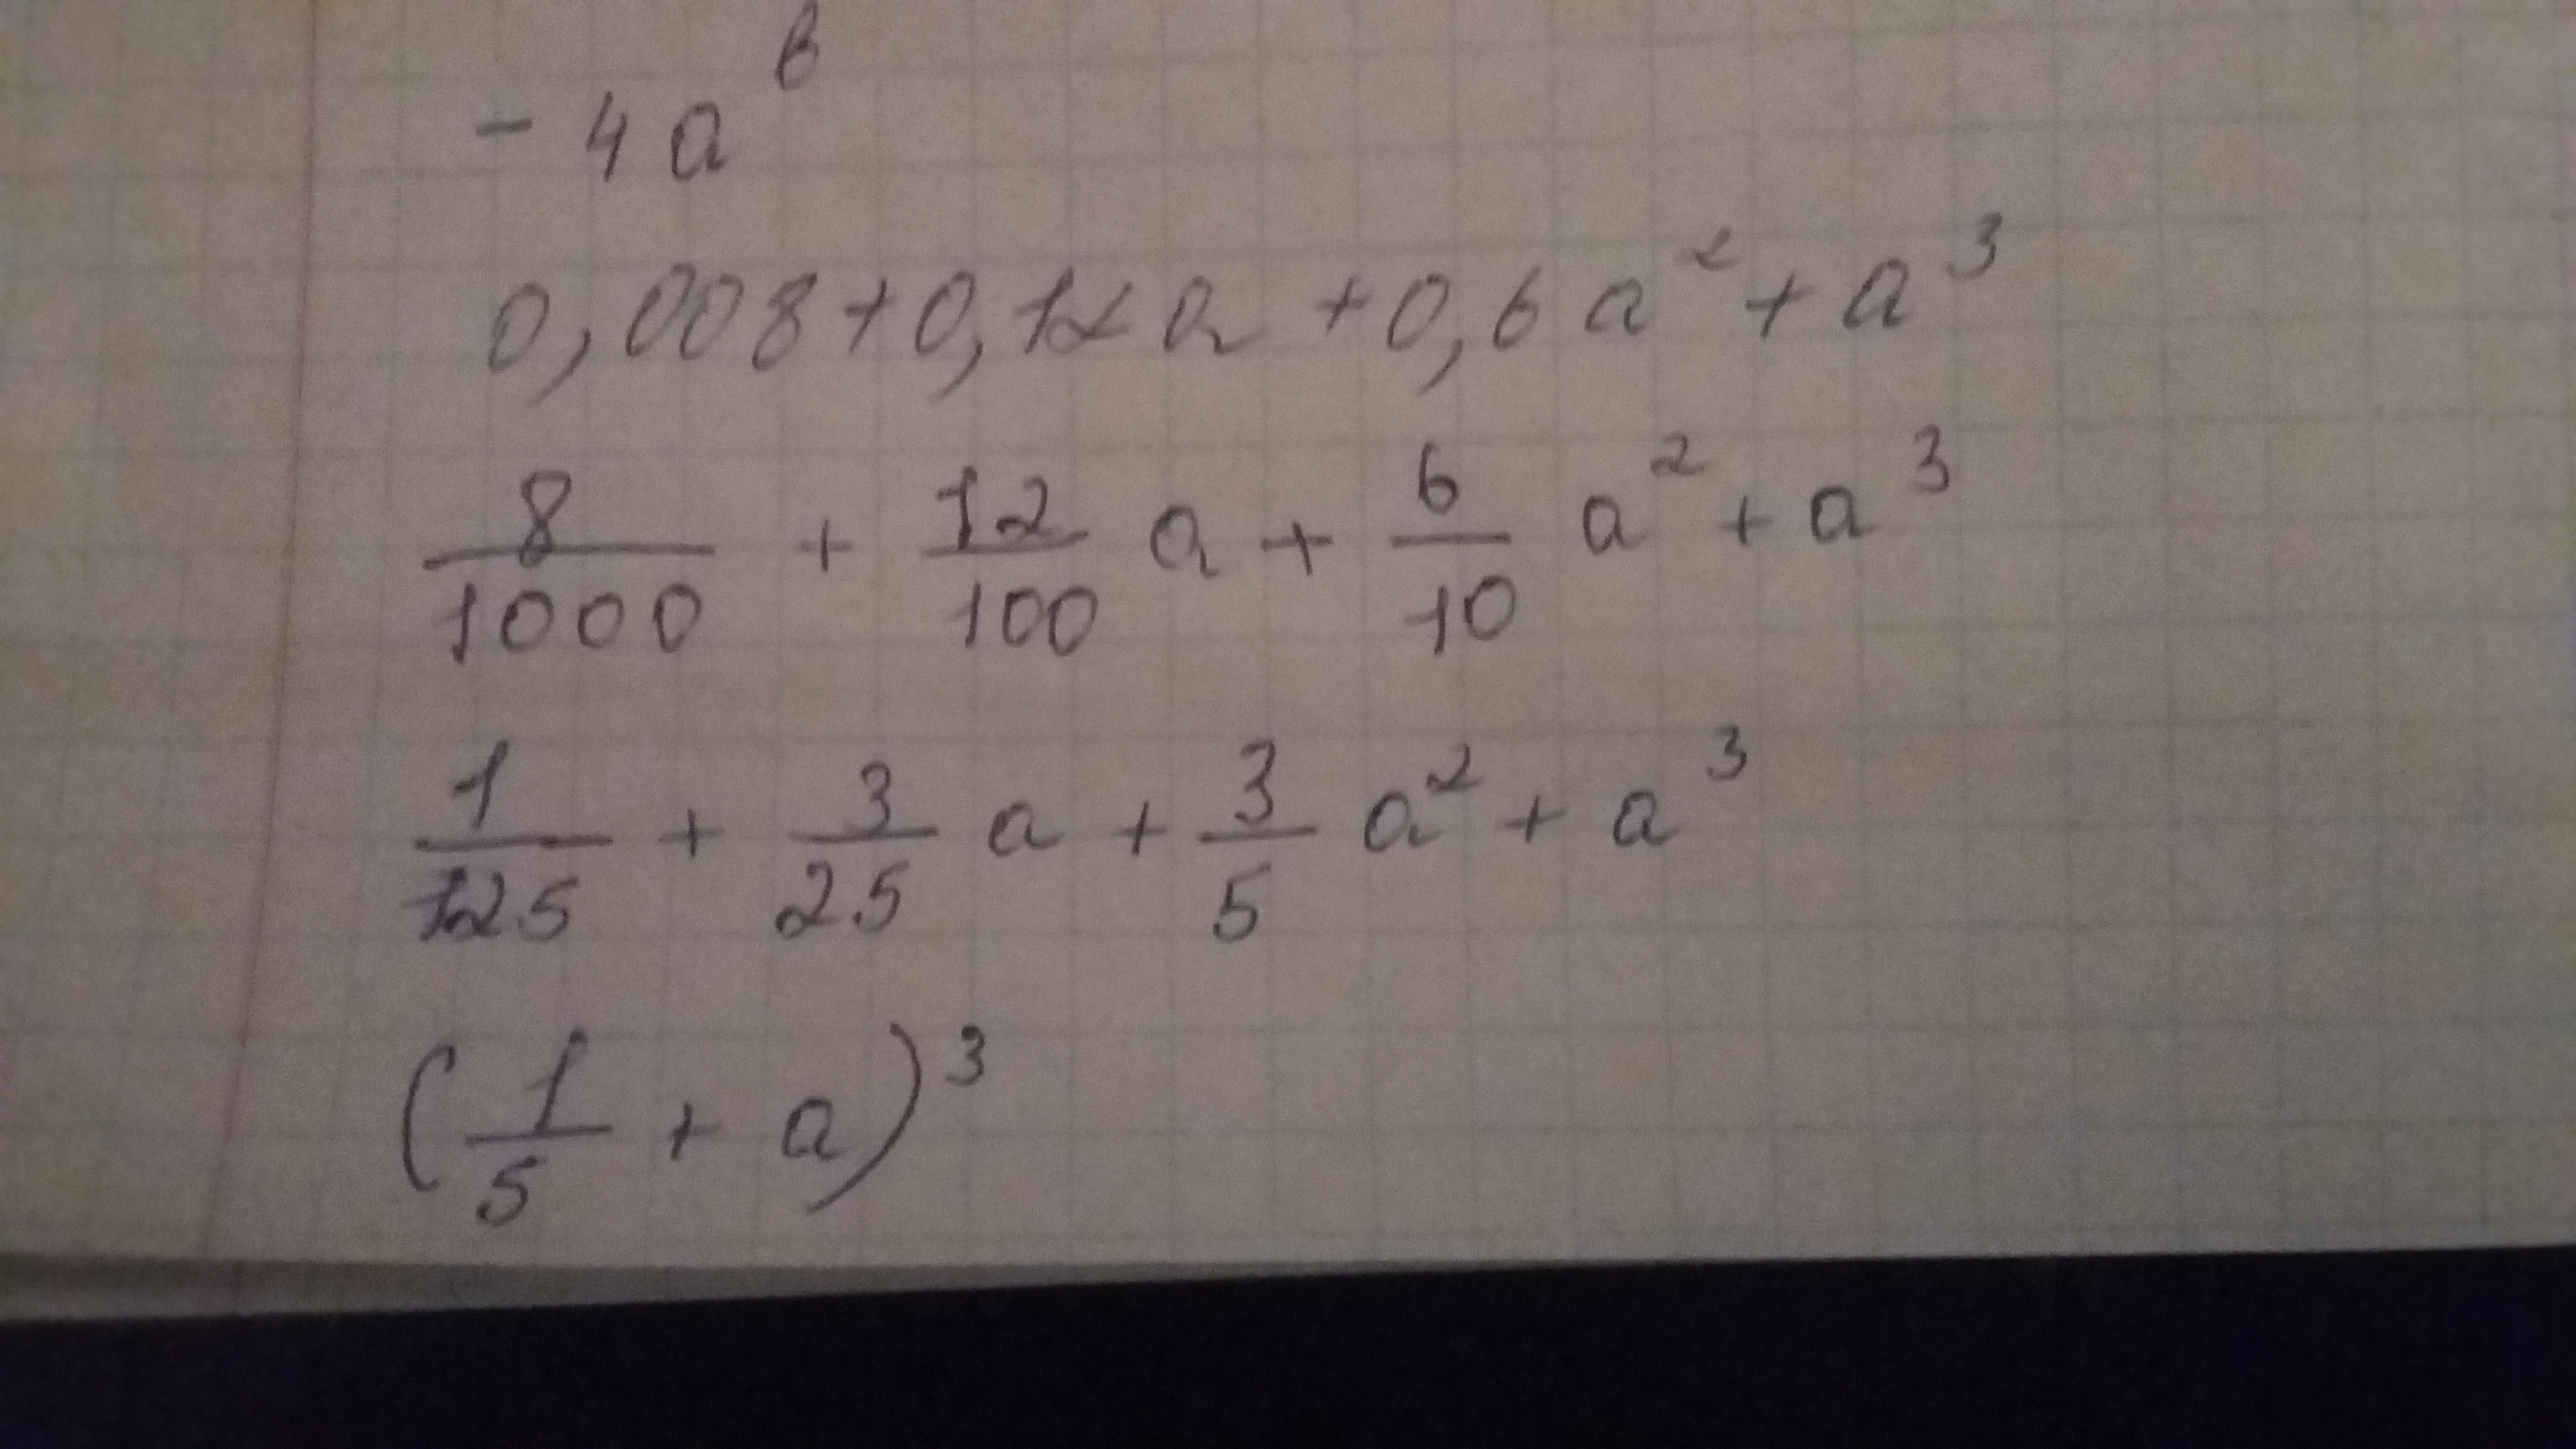 - 4a^в
0,008+0,12a+0,6a²+a³
8/1000 + 12/100 a + 6/10 a² + a³
1/125 + 3/25 a + 3/5 a² + a³
(1/5 + a)³